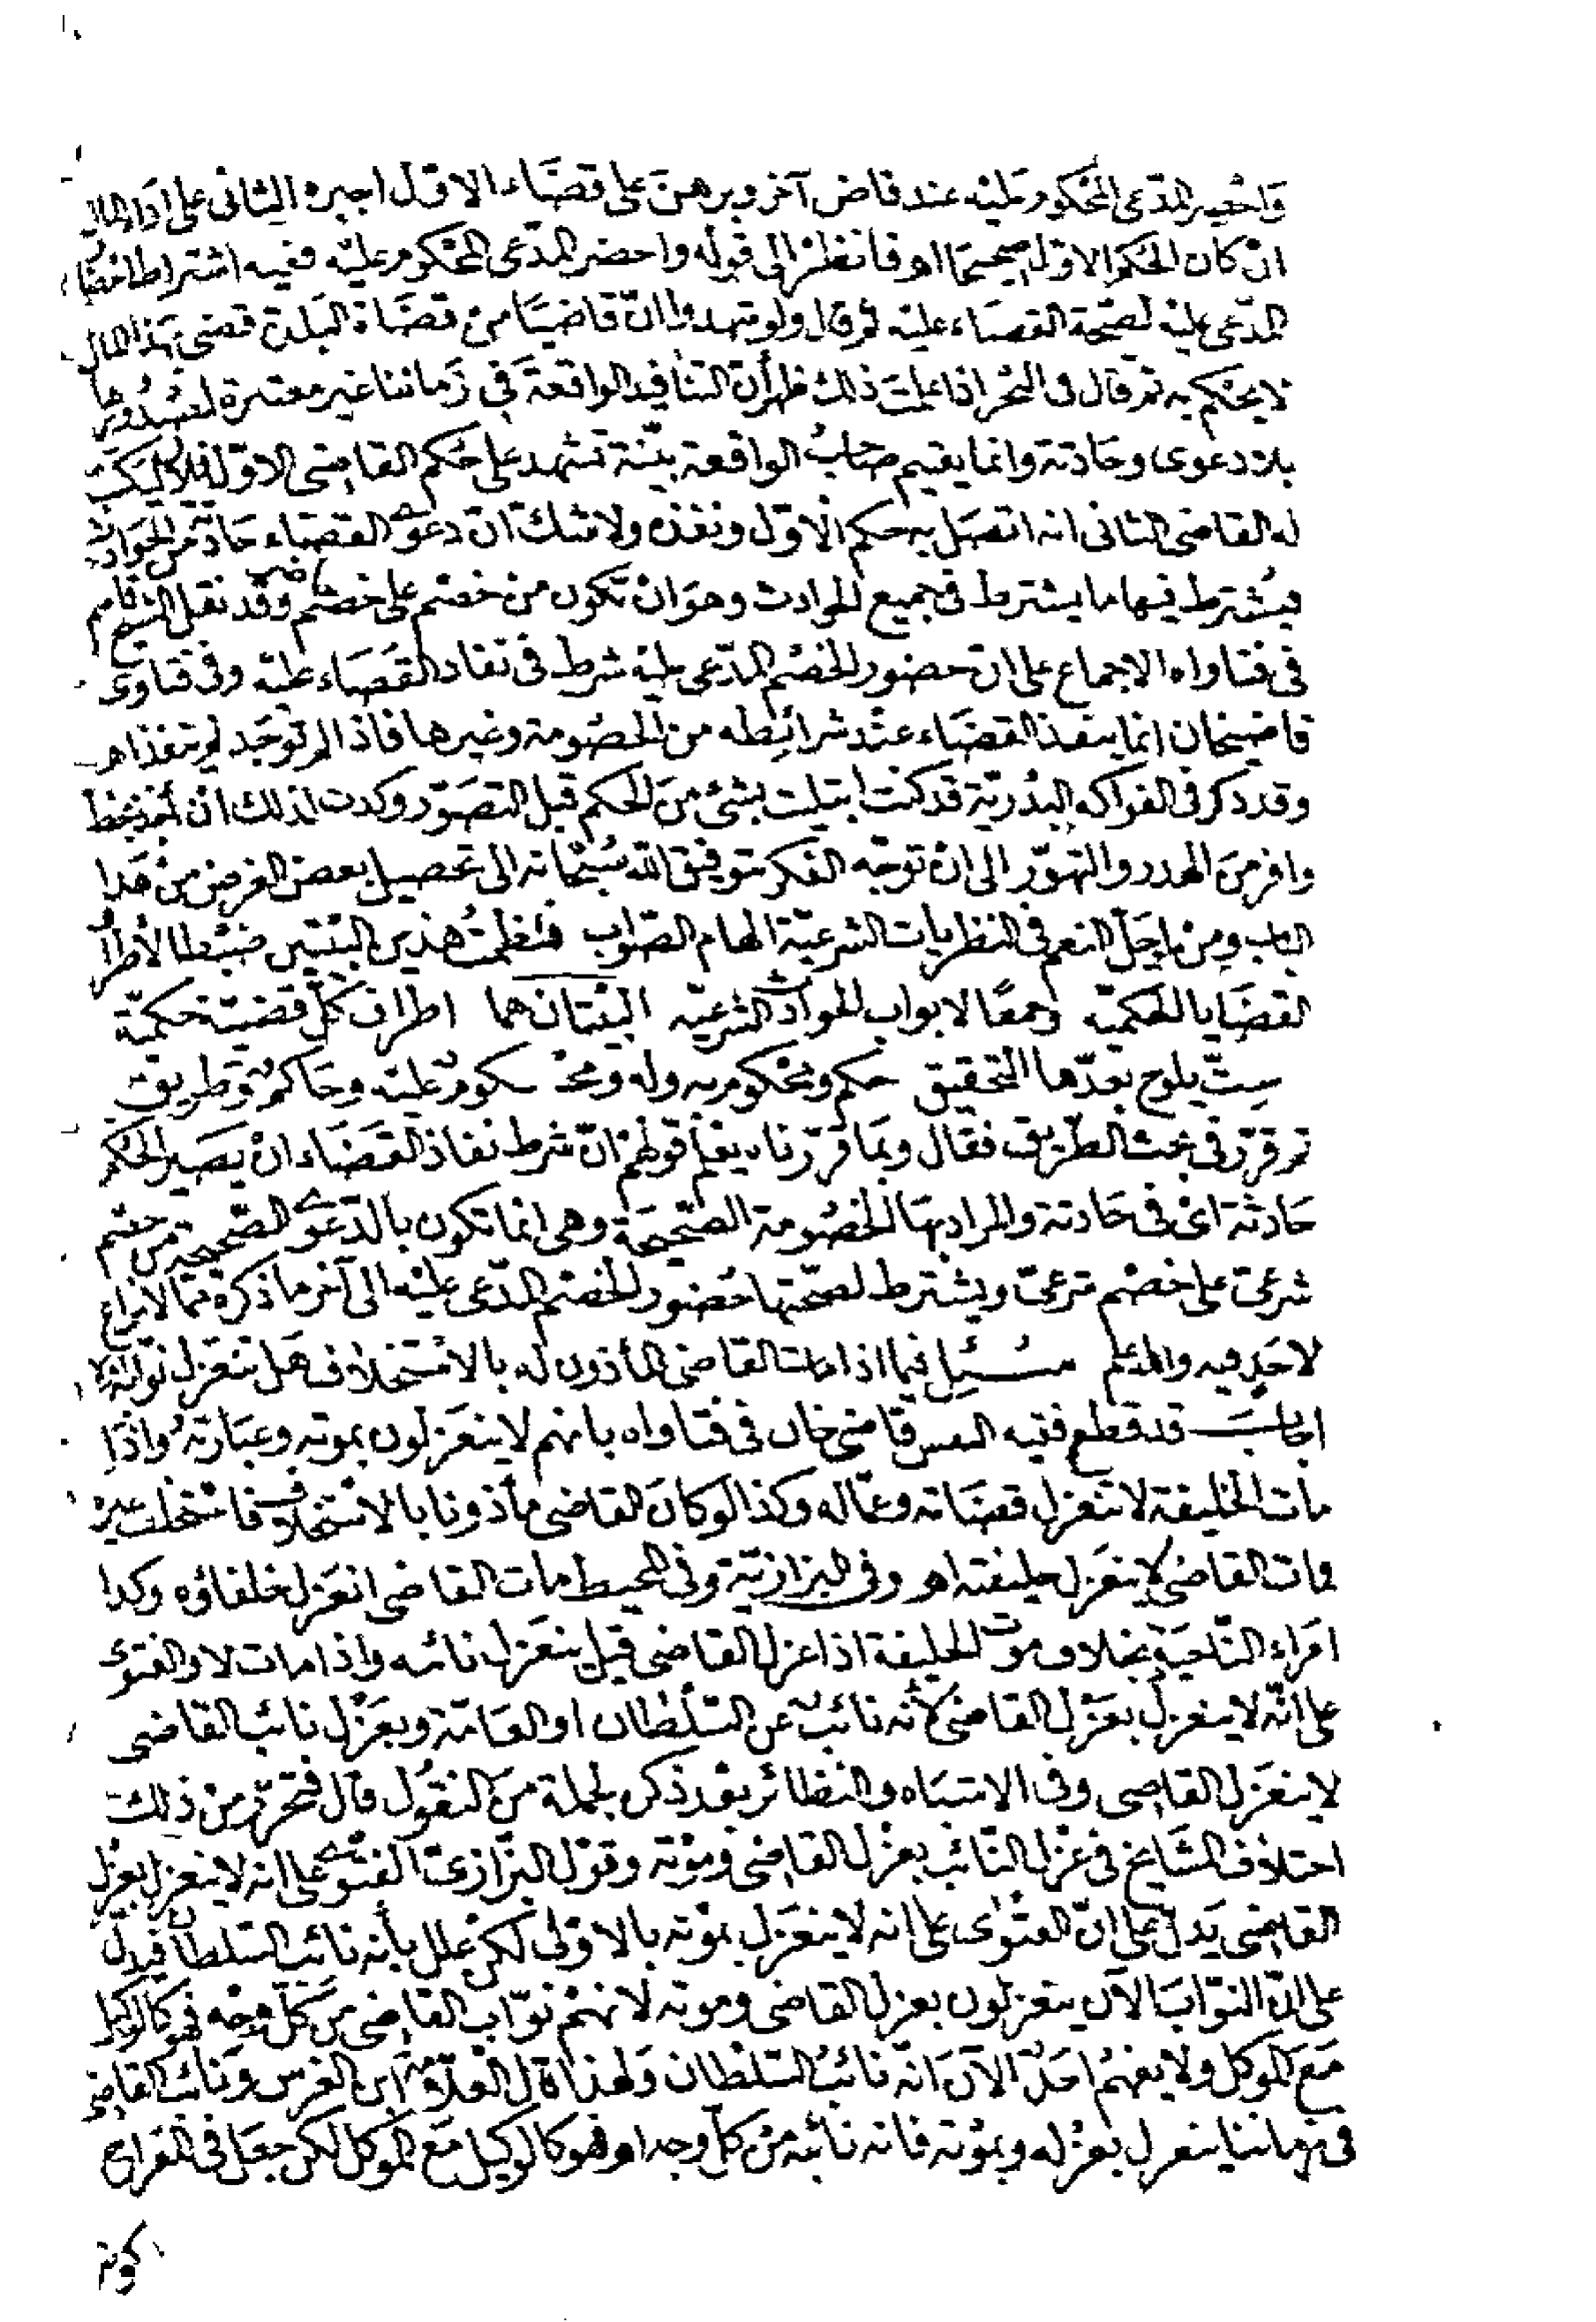 واحضر المدعى المحكوم عليه عند قاض آخر وبرهن على قضاء الاول اجبره الثانى على اداء المال
ان كان الحكم الاول صحيحا اهـ فانظر الى قوله واحضر المدعى المحكوم عليه ففيه اشتراط احضار
المدعى عليه لصحة القضاء عليه ثم قال ولو شهدوا ان قاضيا من قضاة البلدة قضى بهذا المال
لا يحكم به ثم قال فى البحر اذا علمت ذلك ظهر أن التنافيد الواقعة فى زماننا غير معتبرة لصدورها
بلا دعوى وحادثة وانما يقيم صاحب الواقعة بينة تشهد على حكم القاضى الاول فيكتب
له القاضى الثانى انه اتصل به حكم الاول ونفذه ولا شك ان دعوى القضاء حادثة من الحوادث
فيشترط فيها ما يشترط فى جميع الحوادث وهو ان تكون من خصم على خصم حاضر وقد نقل الشيخ قاسم
فى فتاواه الاجماع على ان حضور الخصم المدعى عليه شرط فى نفاد القضاء عليه وفى فتاوى
قاضيخان انما ينفذ القضاء عند شرائطه من الخصومة وغيرها فاذا لم توجد لم تنفذ اهـ
وقد ذكر فى الفواكه البدرية قد كنت ابتليت بشئ من الحكم قبل التصور وكدت لذلك ان آخذ بحظ
وافر من الهدر والتهور الى ان توجه الفكر بتوفيق الله سبحانه الى تحصيل بعض الغرض من هذا
الباب ومن اجل النعم فى النظريات الشرعية الهام الصواب فنظمت هذين البيتين ضبطا لأطراف
القضايا الحكمية وجمعا لابواب الحوادث الشرعيه البيتان هما اطراف كل قضية حكمية
ست يلوح بعدها التحقيق حكم ومحكوم به وله ومحـ ـكوم عليه وحاكم وطريق
ثم قرر فى بحث الطريق فقال وبما قررناه يفهم قولهم ان شرط نفاذ القضاء ان يصير الحكم
حادثة اى فى حادثة والمراد بها الخصومة الصحيحة وهى انما تكون بالدعوى الصحيحة من خصم
شرعى على خصم شرعى ويشترط لصحتها حضور الخصم المدعى عليه الى آخر ما ذكره مما لا نزاع
لاحد فيه والله اعلم سئل فيما اذا مات القاضى المأذون له بالاستخلاف هل تنعزل نوابه اولا
اجاب قد قطع فقيه النفس قاضى خان فى فتاواه بانهم لا ينعزلون بموته وعبارته واذا
مات الخليفة لا تنعزل قضاته وعماله وكذا لو كان القاضى مأذونا بالاستخلاف فاستخلف غيره
فمات القاضى لا ينعزل خليفته اهـ وفى البزازية وفى المحيط مات القاضى انعزل خلفاؤه وكذا
امراء الناحية بخلاف موت الخليفة اذا عزل القاضى قيل ينعزل نائبه واذا مات لا والفتوى
على انه لا ينعزل بعزل القاضى لأنه نائب عن السلطان او العامة وبعزل نائب القاضى
لا ينعزل القاضى وفى الاشباه والنظائر بعد ذكر لجملة من النقول قال فتحرر من ذلك
اختلاف المشايخ فى عزل النائب بعزل القاضى وموته وقول البزازى الفتوى على انه لا ينعزل بعزل
القاضى يدل على ان الفتوى على انه لا ينعزل بموته بالاولى لكن علل بأنه نائب السلطان فيدل
على ان النواب الآن ينعزلون بعزل القاضى وموته لانهم نواب القاضى من كل وجه فهو كالوكيل
مع الموكل ولا يفهم احد الآن انه نائب السلطان ولهذا قال العلامة ابن الغرس ونائب القاضى
فى زماننا ينعزل بعزله وبموته فانه نائبه من كل وجه اهـ وهو كالوكيل مع الموكل لكن جعل فى المعراج
كونه